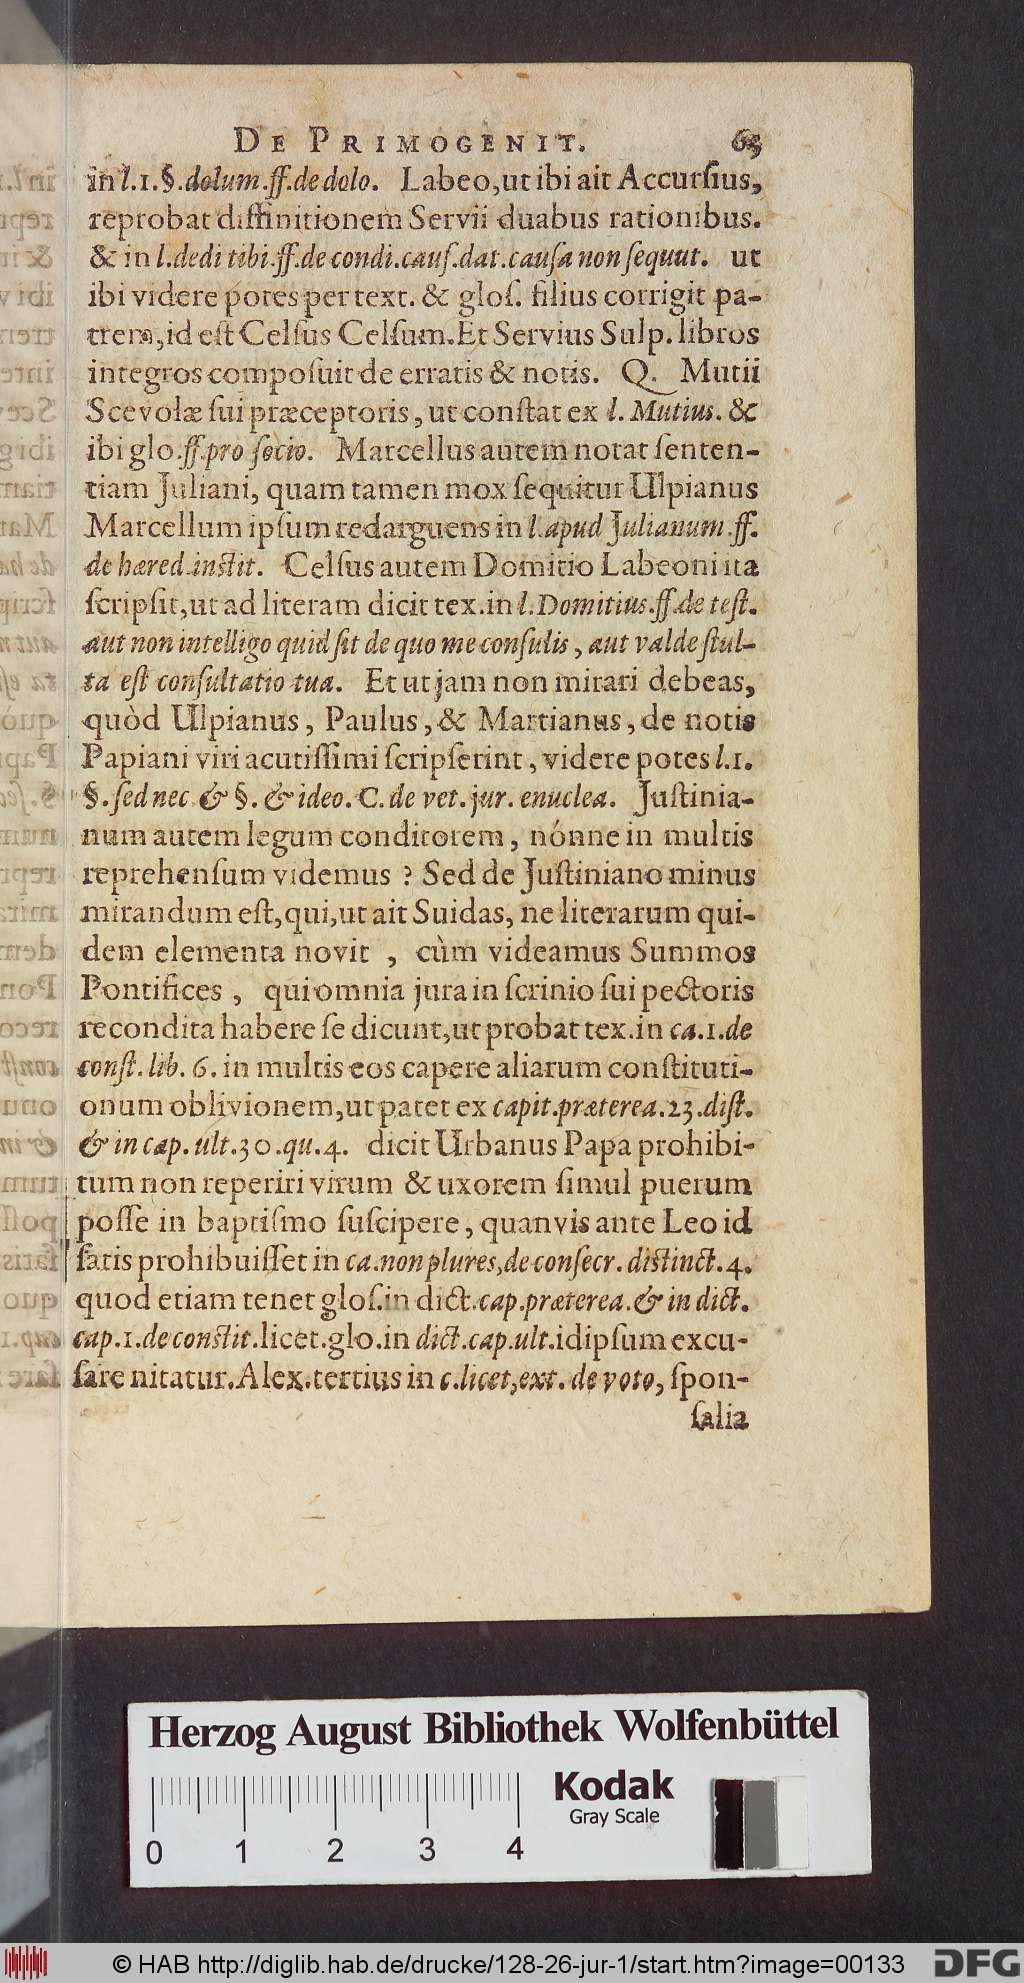 DE PRIMOGENIT. 63
in l.1.§.dolum.ff.de dolo. Labeo,ut ibi ait Accurſius,
reprobat diffinitionem Servii duabus rationibus.
& in l.dedi tibi.ff.de condi.cauſ.dat.cauſa non ſequut. ut
ibi videre potes per text. & gloſ. filius corrigit pa-
trem,id eſt Celſus Celſum.Et Servius Sulp.libros
integros compoſuit de erratis & notis. Q. Mutii
Scevolæ ſui præceptoris, ut conſtat ex l. Mutius. &
ibi glo.ff.pro ſocio. Marcellus autem notat ſenten-
tiam Juliani, quam tamen mox ſequitur Ulpianus
Marcellum ipſum redarguens in l.apud Julianum.ff.
de hæred.inſtit. Celſus autem Domitio Labeoni ita
ſcripſit,ut ad literam dicit tex.in l.Domitius.ff.de teſt.
aut non intelligo quid ſit de quo me conſulis, aut valde ſtul-
ta eſt conſultatio tua. Et ut jam non mirari debeas,
quòd Ulpianus, Paulus, & Martianus, de notis
Papiani viri acutiſſimi ſcripſerint, videre potes l.1.
§.ſed nec & §. & ideo. C. de vet. jur. enuclea. Juſtinia-
num autem legum conditorem, nónne in multis
reprehenſum videmus ? Sed de Juſtiniano minus
mirandum eſt,qui,ut ait Suidas, ne literarum qui-
dem elementa novit , cùm videamus Summos
Pontifices , qui omnia jura in ſcrinio ſui pectoris
recondita habere ſe dicunt,ut probat tex.in ca.1.de
conſt. lib. 6. in multis eos capere aliarum conſtituti-
onum oblivionem,ut patet ex capit.præterea.23.diſt.
& in cap. ult.30.qu.4. dicit Urbanus Papa prohibi-
tum non reperiri virum & uxorem ſimul puerum
poſſe in baptiſmo ſuſcipere, quanvis ante Leo id
ſatis prohibuiſſet in ca.non plures,de conſecr. diſtinct.4.
quod etiam tenet gloſ.in dict.cap.præterea.& in dict.
cap.1.de conſtit.licet.glo.in dict.cap.ult.idipſum excu-
ſare nitatur.Alex.tertius in c.licet,ext. de voto, ſpon-
ſalia
Herzog August Bibliothek Wolfenbüttel
Kodak
Gray Scale
0 1 2 3 4
© HAB http://diglib.hab.de/drucke/128-26-jur-1/start.htm?image=00133
DFG